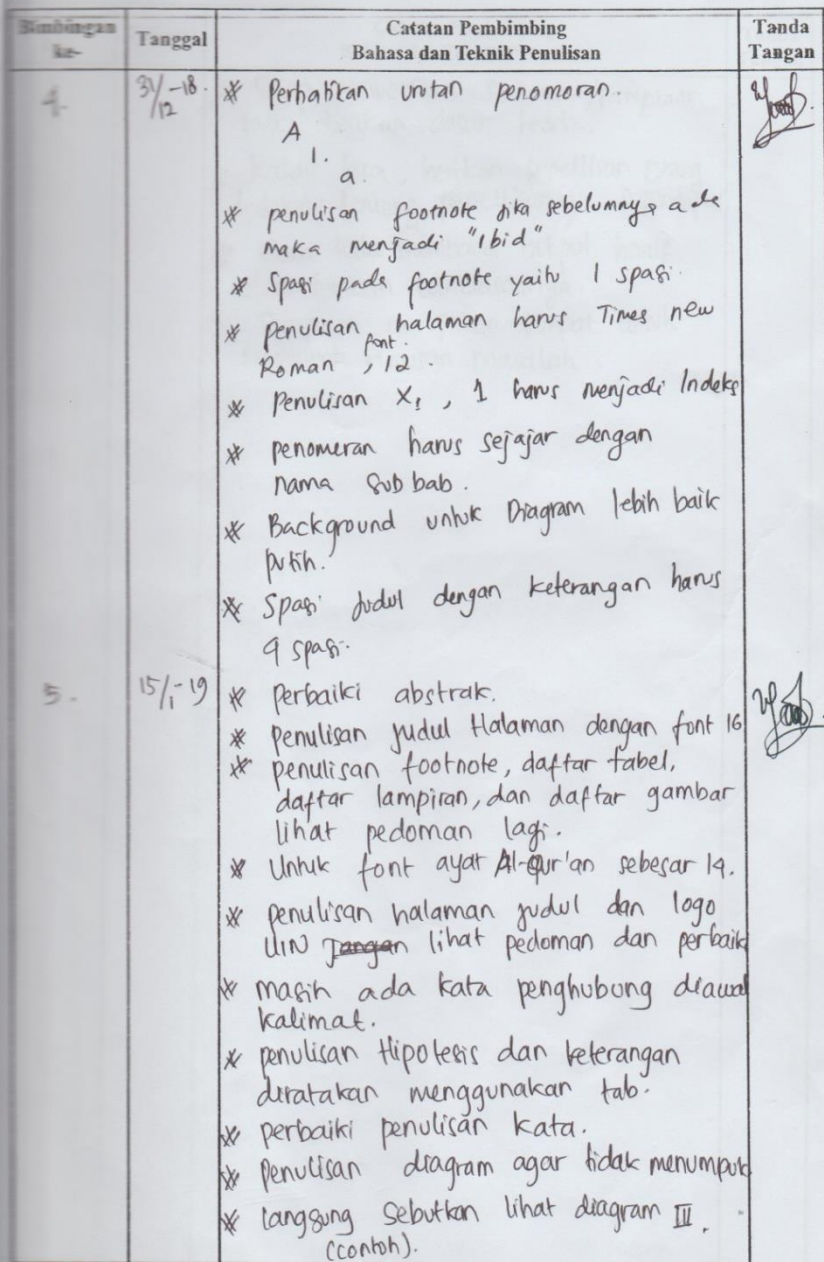 Bimbingan
ke-
Tanggal
Catatan Pembimbing
Bahasa dan Teknik Penulisan
Tanda
Tangan
4.
31/12-18.
* Perhatikan urutan penomoran.
A
1.
a.
* penulisan footnote jika sebelumnya ada
maka menjadi "Ibid"
* Spasi pada footnote yaitu 1 spasi.
* penulisan halaman harus Times new
Roman, font. 12.
* Penulisan X₁, 1 harus menjadi Indeks
* penomeran harus sejajar dengan
nama Sub bab.
* Background untuk Diagram lebih baik
putih.
* Spasi judul dengan keterangan harus
4 spasi.
5.
15/1-19
* perbaiki abstrak.
* penulisan judul Halaman dengan font 16
* penulisan footnote, daftar tabel,
daftar lampiran, dan daftar gambar
lihat pedoman lagi.
* Untuk font ayat Al-Qur'an sebesar 14.
* penulisan halaman judul dan logo
UIN Jangan lihat pedoman dan perbaik
* masih ada kata penghubung diawal
kalimat.
* penulisan Hipotesis dan keterangan
diratakan menggunakan tab.
* perbaiki penulisan kata.
* Penulisan diagram agar tidak menumpuk
* langsung sebutkan lihat diagram III.
(contoh).